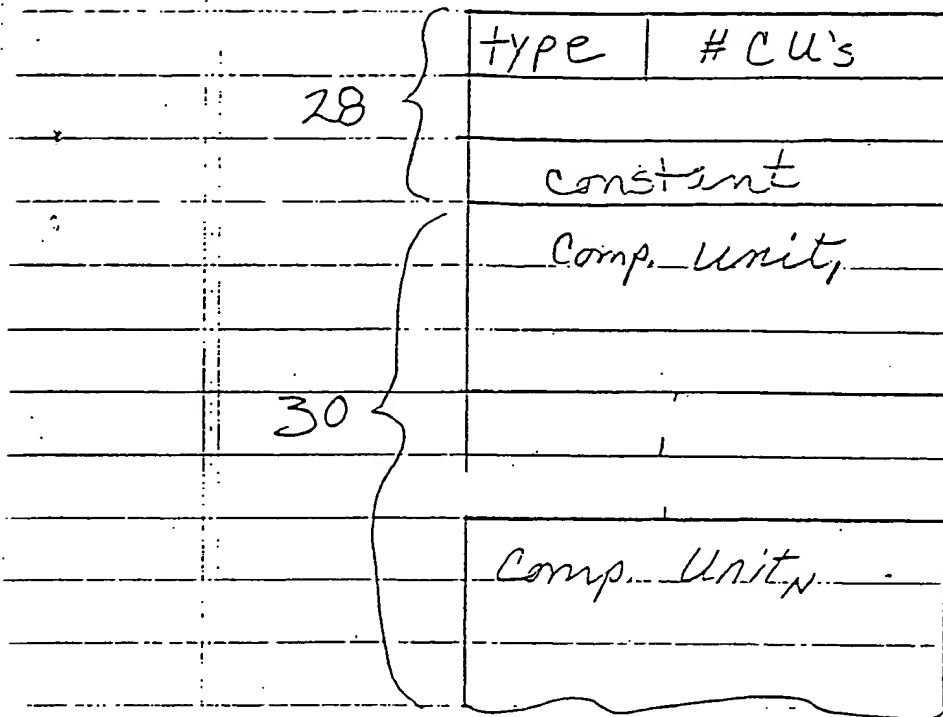 type # CU's
28
constant
Comp. Unit,
30
Comp. Unit N